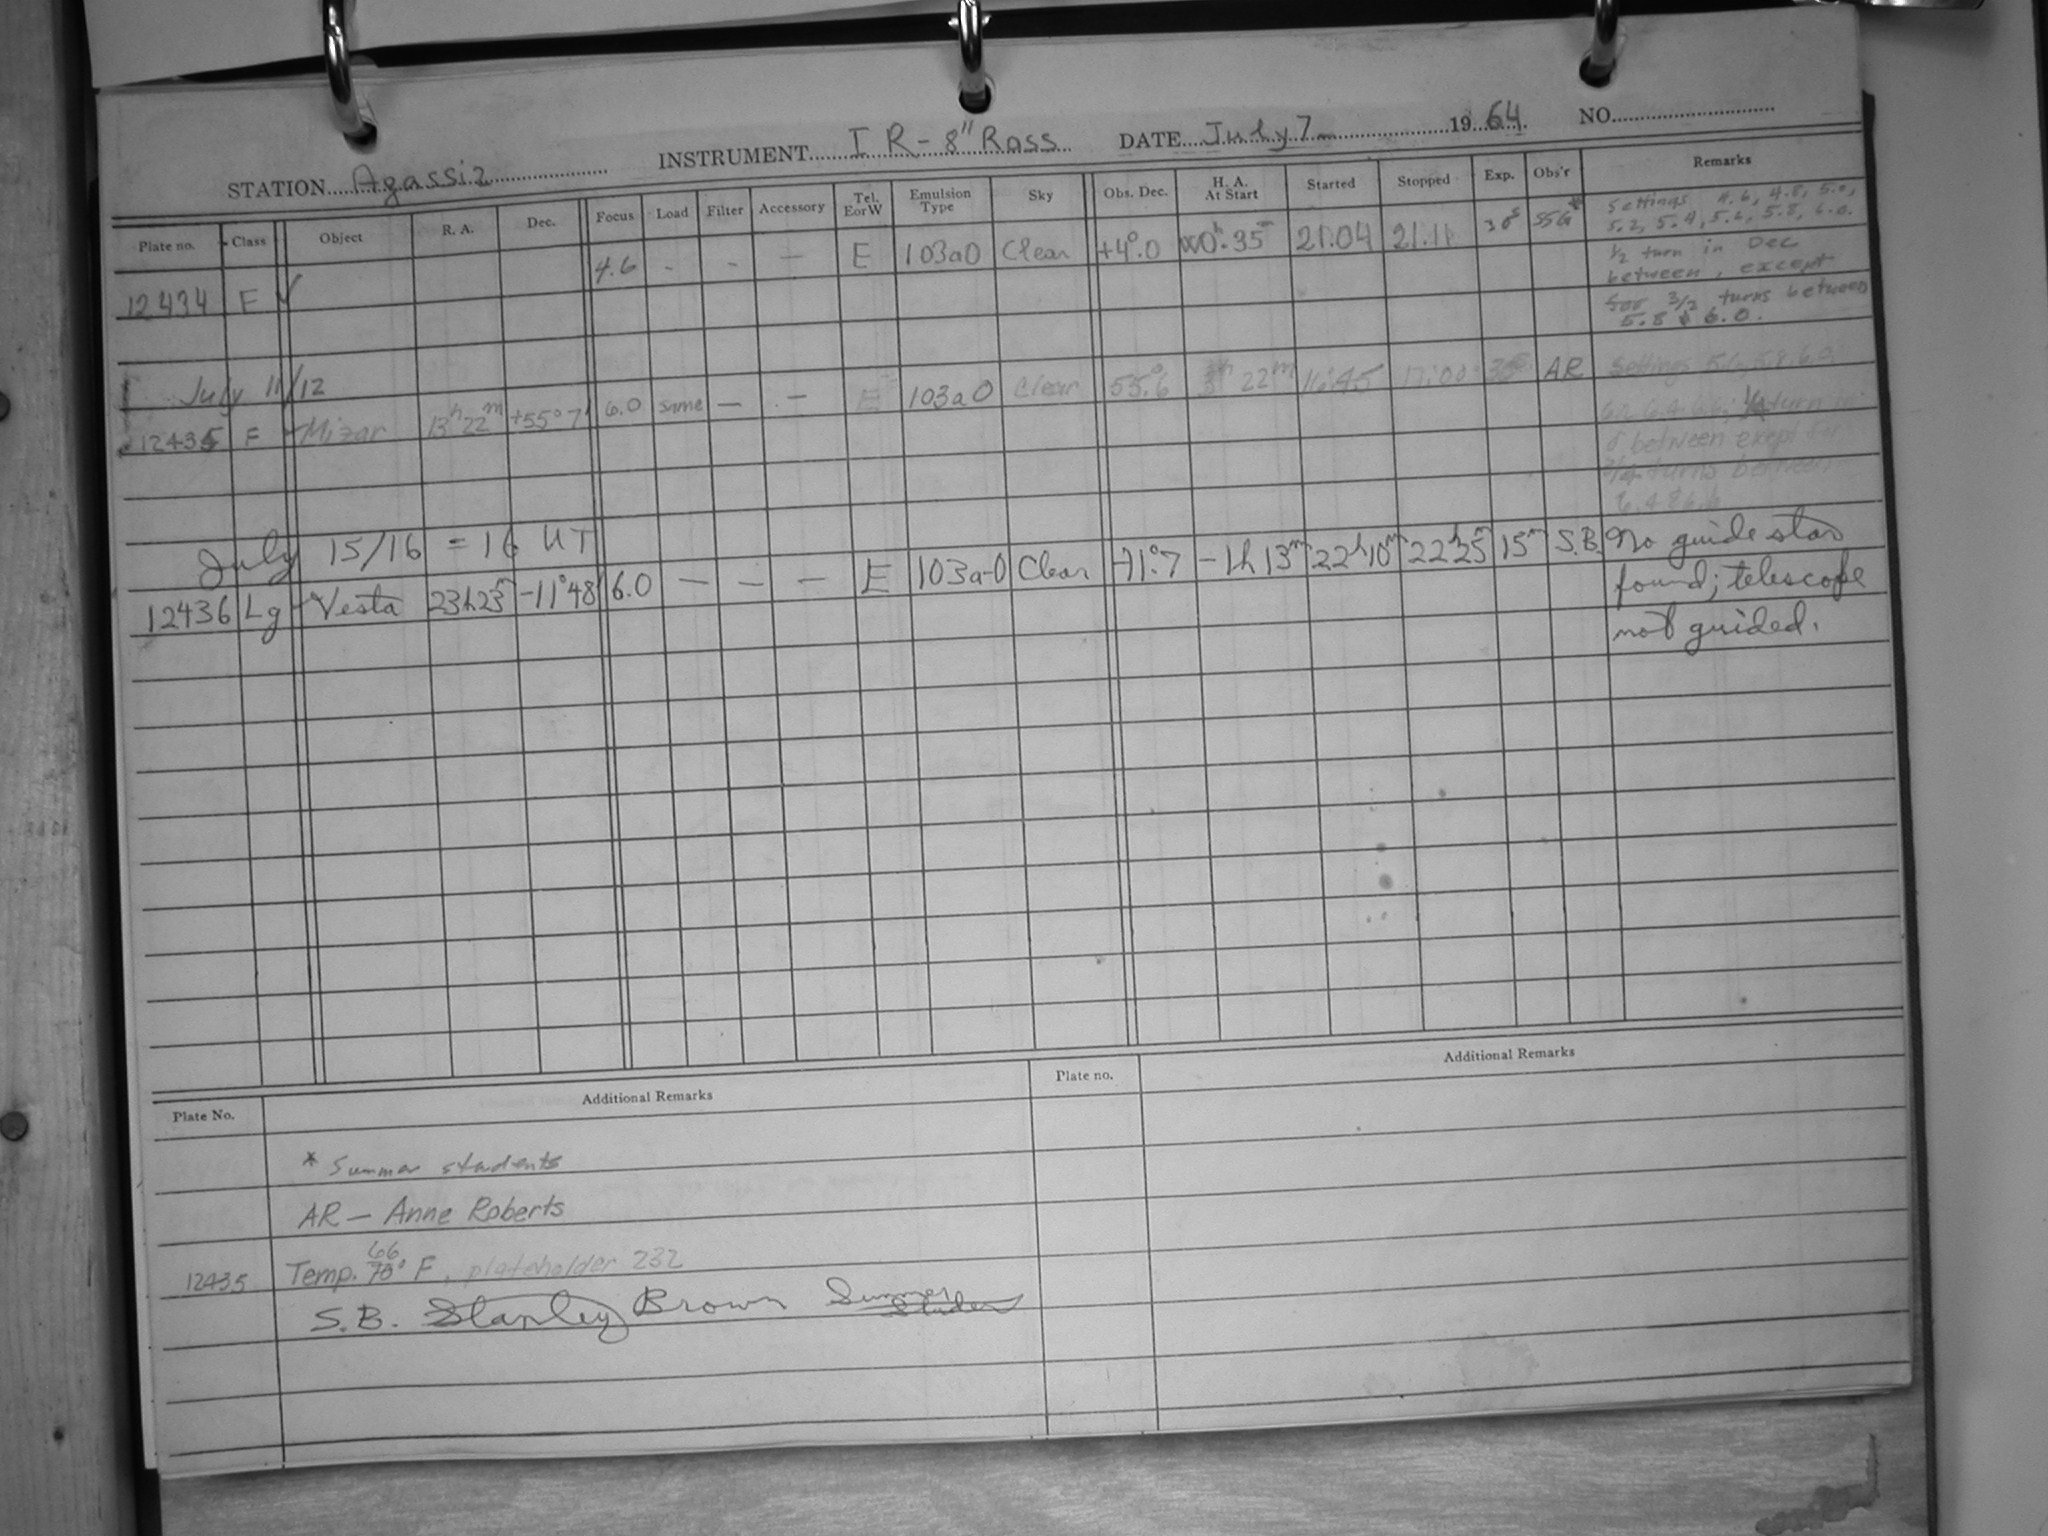 STATION Agassiz INSTRUMENT I R - 8" Ross DATE July 7 1964. NO.
Plate no. Class Object R. A. Dec. Focus Load Filter Accessory Tel. EorW Emulsion Type Sky Obs. Dec. H. A. At Start Started Stopped Exp. Obs'r Remarks
12434 F ✓ 4.6 - - — E 103aO Clear +4°.0 21:04 21:11 30s SSG* Settings 4.6, 4.8, 5.0,
5.2, 5.4, 5.6, 5.8, 6.0.
1/2 turn in Dec
between, except
for 3/2 turns between
5.8 & 6.0.
July 11/12
12435 F Mizar 13h22m +55°7' 6.0 same — — E 103aO Clear 55°.6 3h 22m 16:45 17:00 AR Settings 5.6, 5.8, 6.0,
6.2, 6.4, 6.6; 1/4 turn in
δ between exept for
3/4 turns between
6.4 & 6.6
July 15/16 = 16 UT
12436 Lg Vesta 23h23m -11°48' 6.0 — — — E 103a-O Clear -11°.7 -1h 13m 22h10m 22h25m 15m S.B. No guide star
found; telescope
not guided.
Plate No. Additional Remarks Plate no. Additional Remarks
* Summer students
AR — Anne Roberts
66
12435 Temp. 70° F, plateholder 232
S.B. Stanley Brown Summer Student